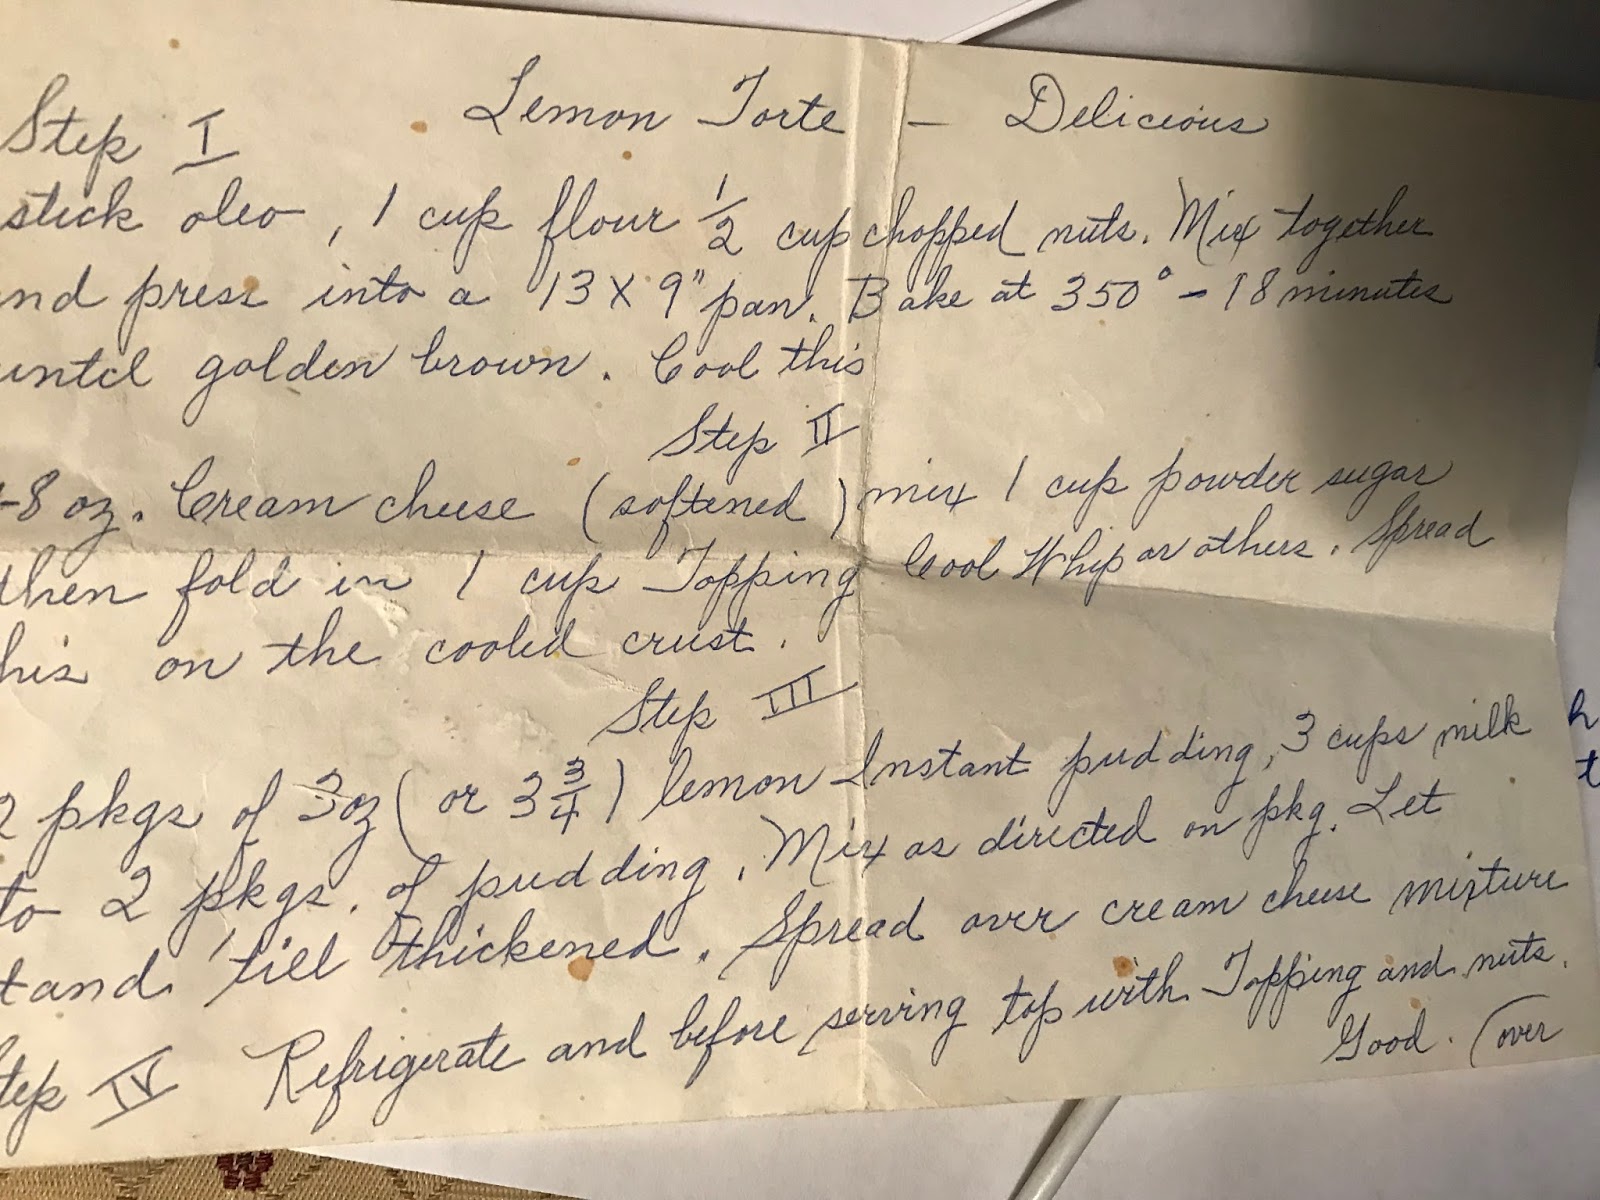 Lemon Torte – Delicious
Step I
stick oleo, 1 cup flour 1/2 cup chopped nuts. Mix together
nd press into a 13 X 9" pan. Bake at 350° - 18 minutes
until golden brown. Cool this
Step II
-8 oz. Cream cheese (softened) mix 1 cup powder sugar
then fold in 1 cup Topping Cool Whip or others. Spread
his on the cooled crust.
Step III
2 pkgs of 3 oz (or 3 3/4) lemon Instant pudding, 3 cups milk
to 2 pkgs. of pudding. Mix as directed on pkg. Let
tand 'till thickened. Spread over cream cheese mixture
tep IV Refrigerate and before serving top with Topping and nuts.
Good. (over
h
t